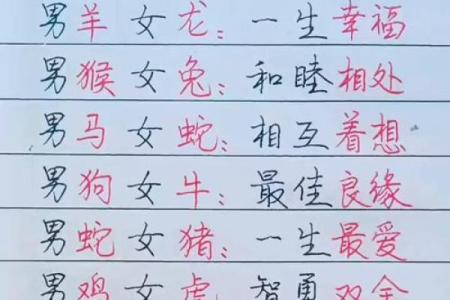 男羊女龙：一生幸福
男猴女兔：和睦相处
男马女蛇：相互着想
男狗女牛：最佳良缘
男蛇女猪：一生最爱
男鸡女虎：智勇双全